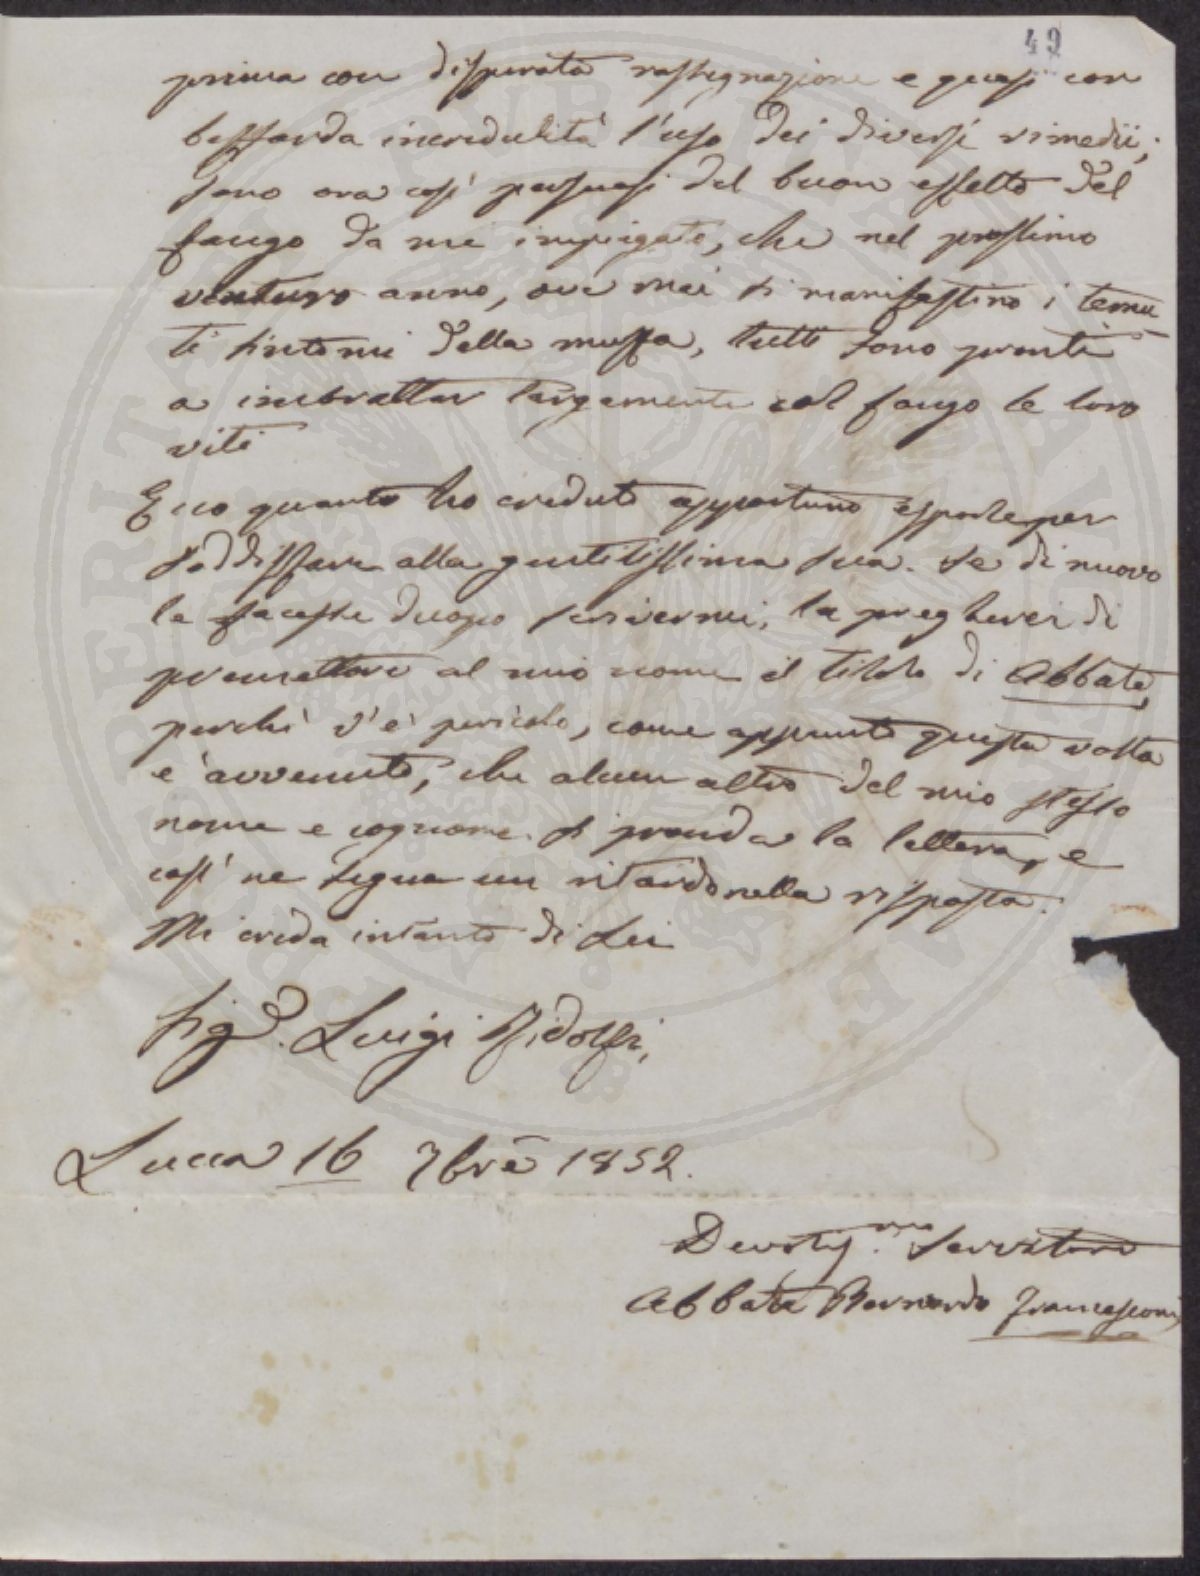 49
prima con disperata rassegnazione e quasi con
beffarda incredulità l'uso dei diversi rimedii;
sono ora così persuasi del buon effetto del
fango da me impiegato, che nel prossimo
venturo anno, ove mai si manifestino i temu
ti sintomi della muffa, tutti sono pronti
a imbrattar largamente col fango le loro
viti
Ecco quanto ho creduto opportuno esporle per
soddisfare alla gentilissima sua. Se di nuovo
le facesse duopo scrivermi, la pregherei di
premettere al mio nome il titolo di Abbate,
perchè v'è pericolo, come appunto questa volta
è avvenuto, che alcun altro del mio stesso
nome e cognome si prenda la lettera, e
così ne segua un ritardo nella risposta.
Mi creda intanto di Lei
Sigr. Luigi Ridolfi,
Lucca 16 7bre 1852.
Devotis.mo Servitore
Abbate Bernardo Francesconi
PROSPERITATI PVBLICAE AVGENDAE